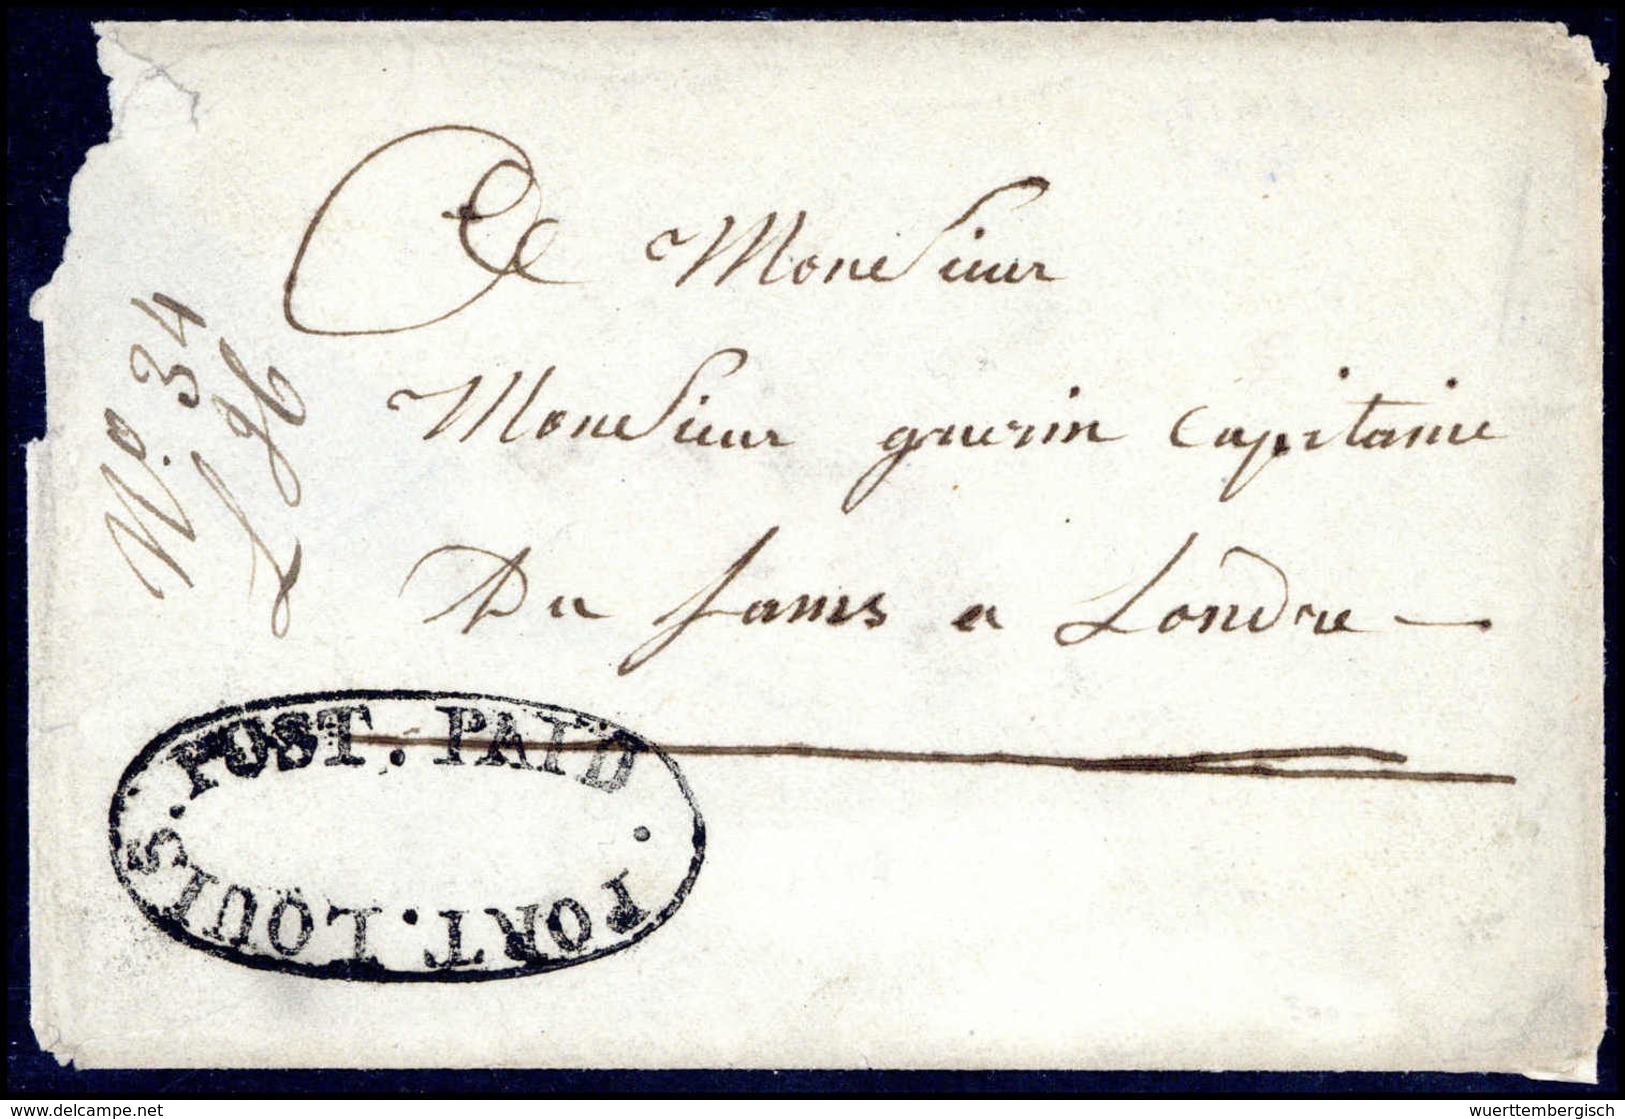 A Monsieur
Monsieur guerin capitaine
Du sams a Londre
No. 34
POST. PAID.
PORT. LOUIS.
delcampe.net
wuerttembergisch